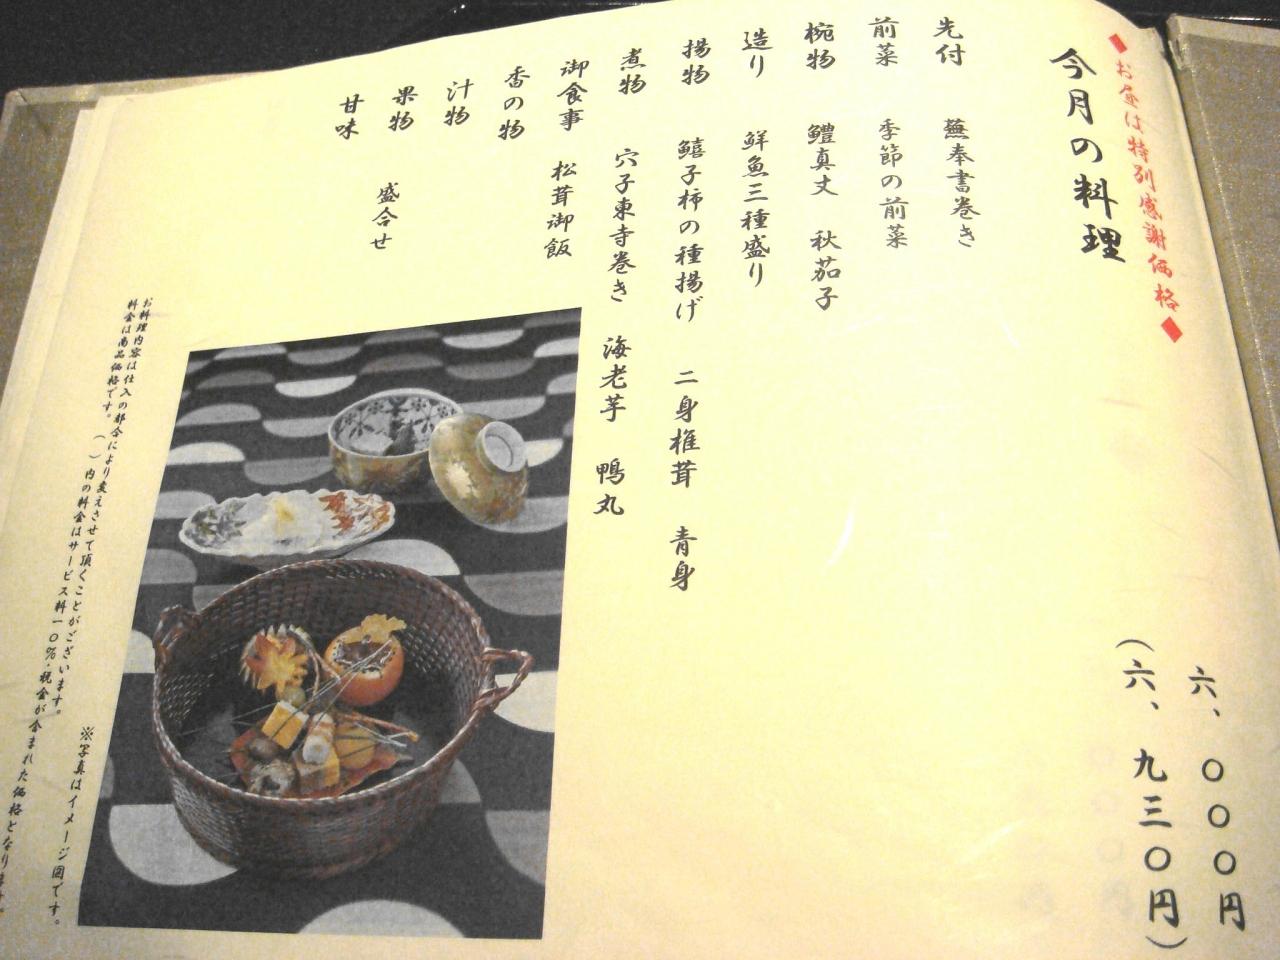 ◆お昼は特別感謝価格◆
今月の料理
六、〇〇〇円
(六、九三〇円)
先付 蕪奉書巻き
前菜 季節の前菜
椀物 鱧真丈 秋茄子
造り 鮮魚三種盛り
揚物 鱚子柿の種揚げ 二身椎茸 青身
煮物 穴子東寺巻き 海老芋 鴨丸
御食事 松茸御飯
香の物
汁物
果物 盛合せ
甘味
お料理内容は仕入の都合により変えさせて頂くことがございます。 ※写真はイメージ図です。
料金は商品価格です。( )内の料金はサービス料一〇%・税金が含まれた価格となります。